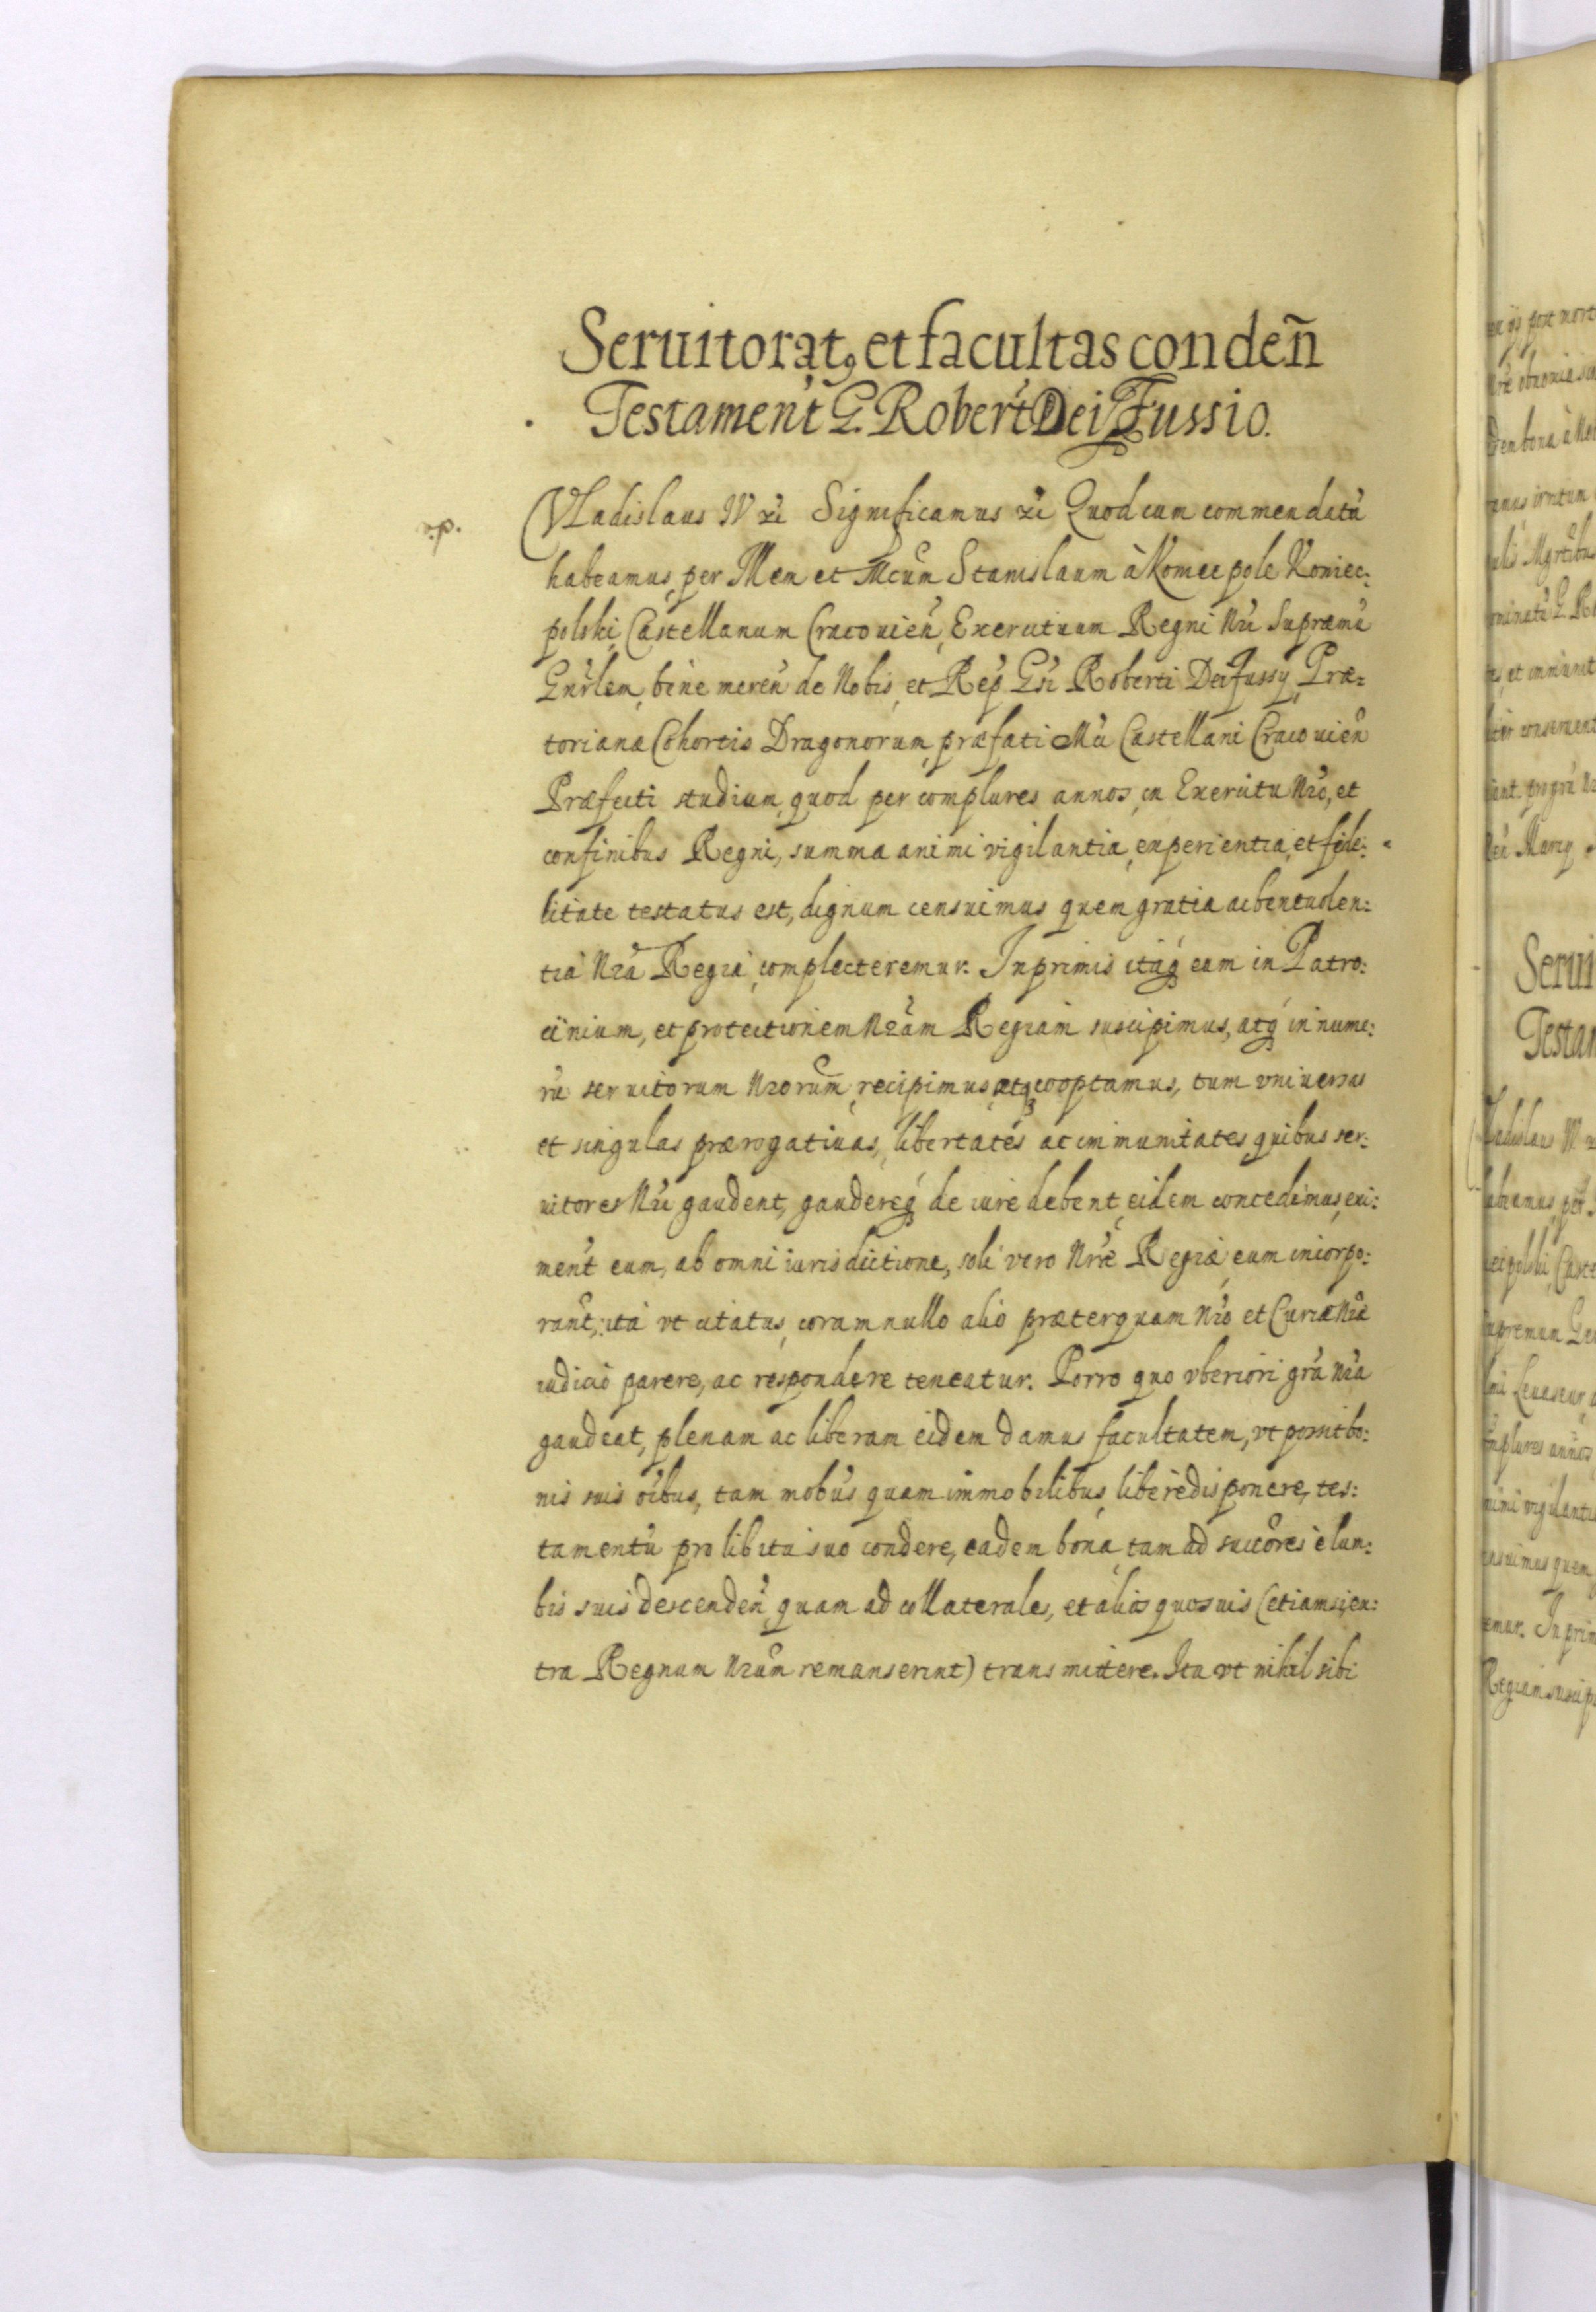 Seruitorat9 et facultas condeñ
Testamen't G. Rober't Dei Fussio.
r.p.
Vladislaus IV etc Significamus etc Quod cum commendatũ
habeamus, per Illem et Mcum Stanislaum à Koniecpole Koniec:
polski, Castellanum Cracouien̉, Exercituum Regni Nri Supremũ
Gnrlem, bene meren̉ de Nobis, et Rep Gsi Roberti Deifussy, Præ=
torianæ Cohortis Dragonorum, præfati Mci Castellani Cracouien̉
Præfecti studium, quod per complures annos, in Exercitu Nro, et
confinibus Regni, summa animi vigilantia, experientia, et fide:
litate testatus est, dignum censuimus quem gratia ac beneuolen:
tia Nra Regia, complecteremur. Inprimis itaq eum in Patro:
cinium, et protectionem Nram Regiam suscipimus, atq in nume:
rũ seruitorum Nrorum, recipimus atq cooptamus, tum vniuersas
et singulas prærogatiuas, libertates ac immunitates, quibus ser:
uitores Nri gaudent, gaudereq de iure debent, eidem concedimus, exi:
men̉t eum, ab omni iurisdictione, soli vero Nræ Regiæ, eum incorpo:
ran̉t, ita vt citatus, coram nullo alio præterquam Nro et Curiæ Nræ
iudicio parere, ac respondere teneatur. Porro quo vberiori gra Nra
gaudeat, plenam ac liberam eidem damus facultatem, vt possit bo:
nis suis oibus, tam mobus quam immobilibus, liberè disponere, tes:
tamentũ pro libitu suo condere, eadem bona, tam ad succores è lum:
bis suis descenden̉, quam ad collaterales, et alios quosuis (etiamsi, ex:
tra Regnum Nrum remanserint) transmittere. Ita vt nihil sibi